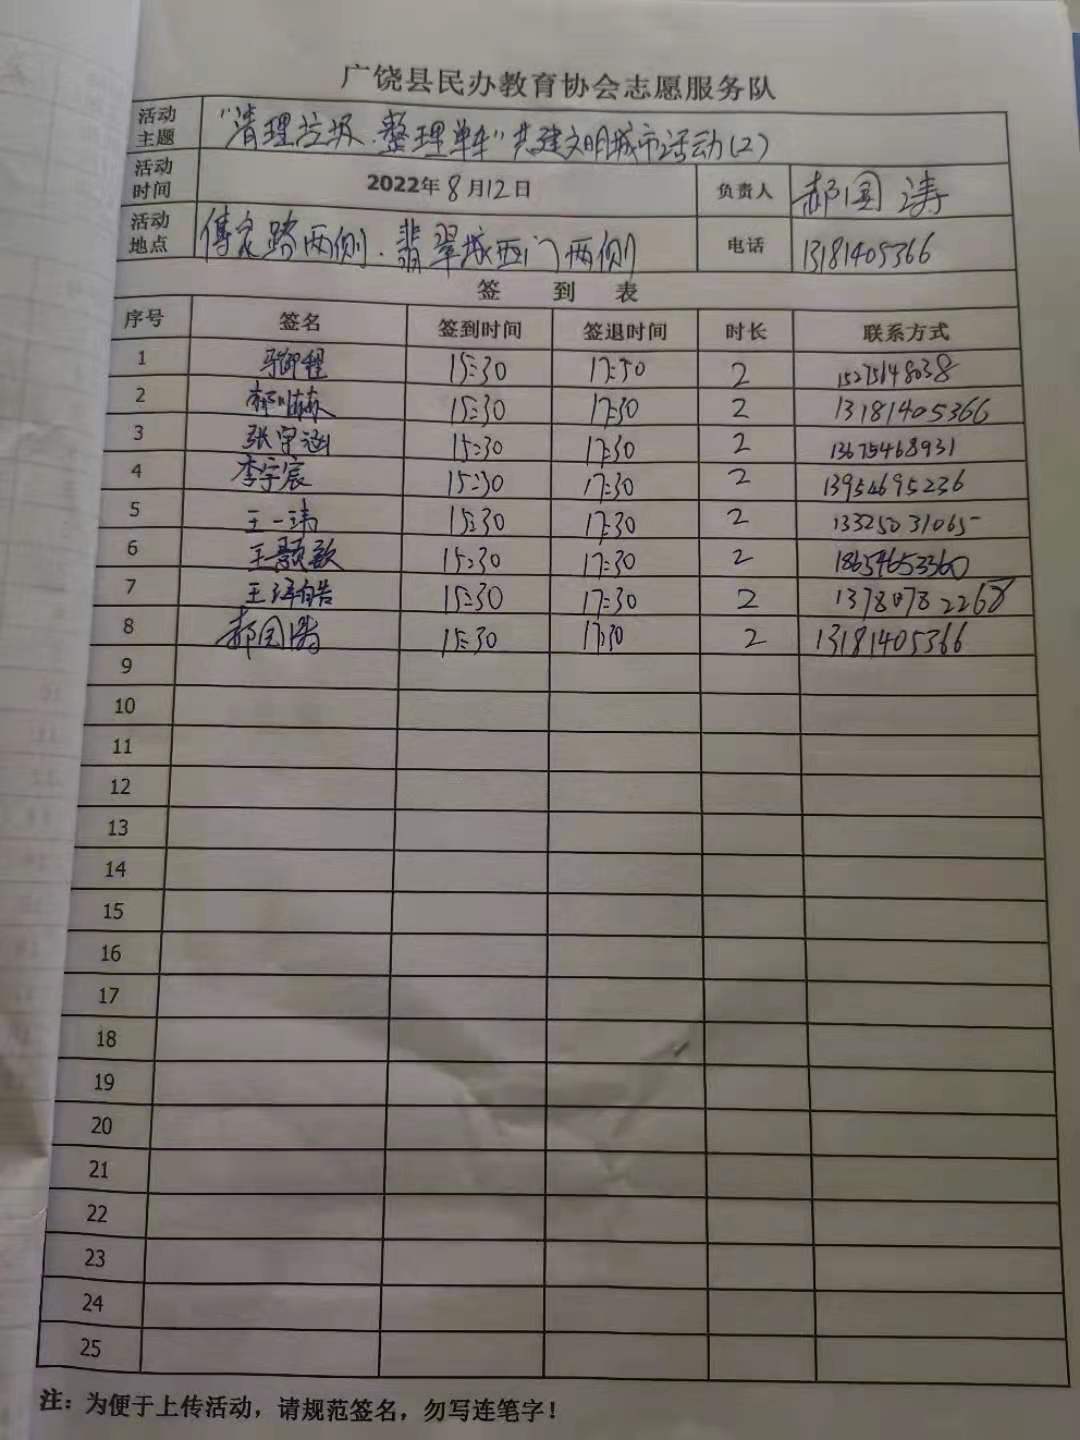 广饶县民办教育协会志愿服务队
活动主题 "清理垃圾.整理单车"共建文明城市活动(2)
活动时间 2022年8月12日 负责人 郝国涛
活动地点 傅家路两侧.翡翠城西门两侧 电话 13181405366
签 到 表
序号 签名 签到时间 签退时间 时长 联系方式
1 15:30 17:30 2 15275148038
2 15:30 17:30 2 13181405366
3 张宇涵 15:30 17:30 2 13675468931
4 李宇宸 15:30 17:30 2 13954695236
5 王一玮 15:30 17:30 2 13325031065
6 15:30 17:30 2 18654653360
7 15:30 17:30 2 13780782268
8 郝国涛 15:30 17:30 2 13181405366
9
10
11
12
13
14
15
16
17
18
19
20
21
22
23
24
25
注：为便于上传活动，请规范签名，勿写连笔字！